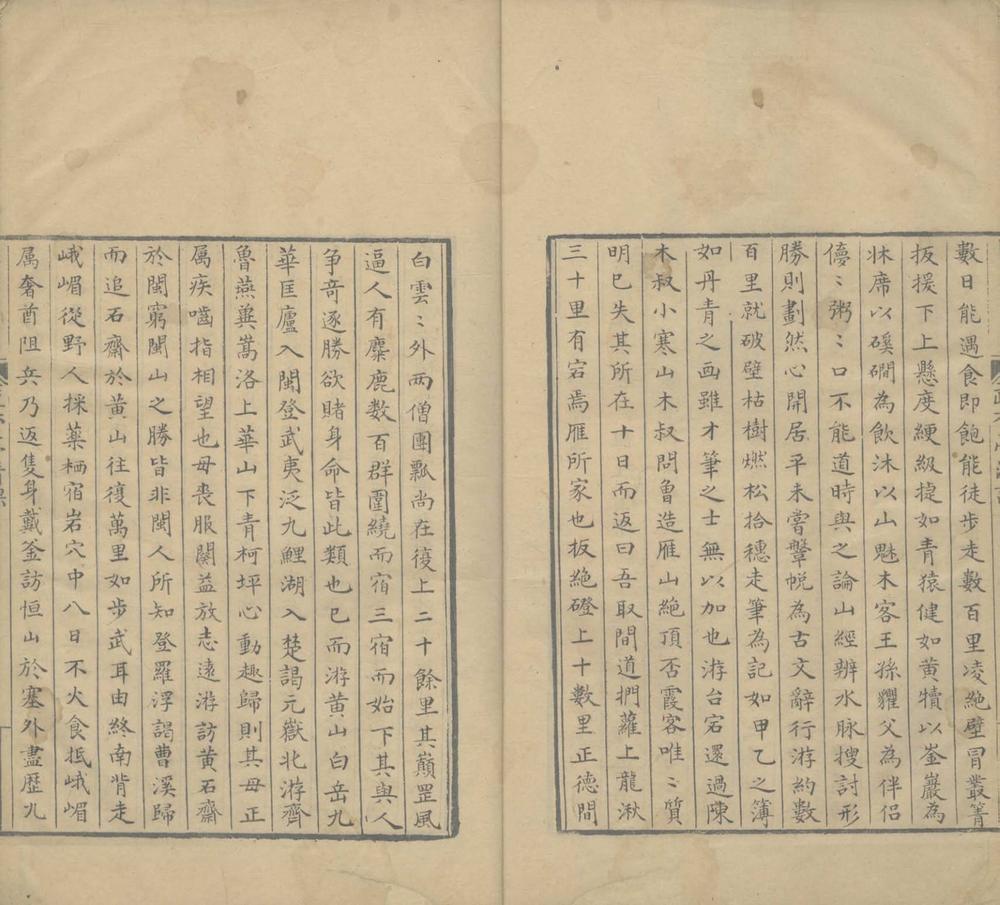 數日能遇食即飽能徒步走數百里凌絶壁冒叢箐
扳援下上懸度綆級捷如青猿健如黃犢以崟巖為
牀席以磎磵為飲沐以山魅木客王孫玃父為伴侣
儚〻粥〻口不能道時與之論山經辨水脉搜討形
勝則劃然心開居平未嘗鞶帨為古文辭行游約數
百里就破壁枯樹燃松拾穗走筆為記如甲乙之簿
如丹青之画雖才筆之士無以加也游台宕還過陳
木叔小寒山木叔問魯造雁山絶頂否霞客唯〻質
明已失其所在十日而返曰吾取間道捫蘿上龍湫
三十里有宕焉雁所家也扳絶磴上十數里正德間
白雲〻外两僧團瓢尚在復上二十餘里其巔罡風
逼人有麋鹿數百群圍繞而宿三宿而始下其與人
争奇逐勝欲賭身命皆此類也已而游黄山白岳九
華匡廬入閩登武夷泛九鯉湖入楚謁元嶽北游齊
魯燕冀嵩洛上華山下青柯坪心動趣歸則其母正
属疾嚙指相望也母喪服闋益放志遠游訪黄石齋
於閩窮閩山之勝皆非閩人所知登羅浮謁曹溪歸
而追石齋於黄山往復萬里如步武耳由終南背走
峨嵋從野人採藥栖宿岩穴中八日不火食抵峨嵋
属奢酋阻兵乃返隻身戴釜訪恒山於塞外盡歷九